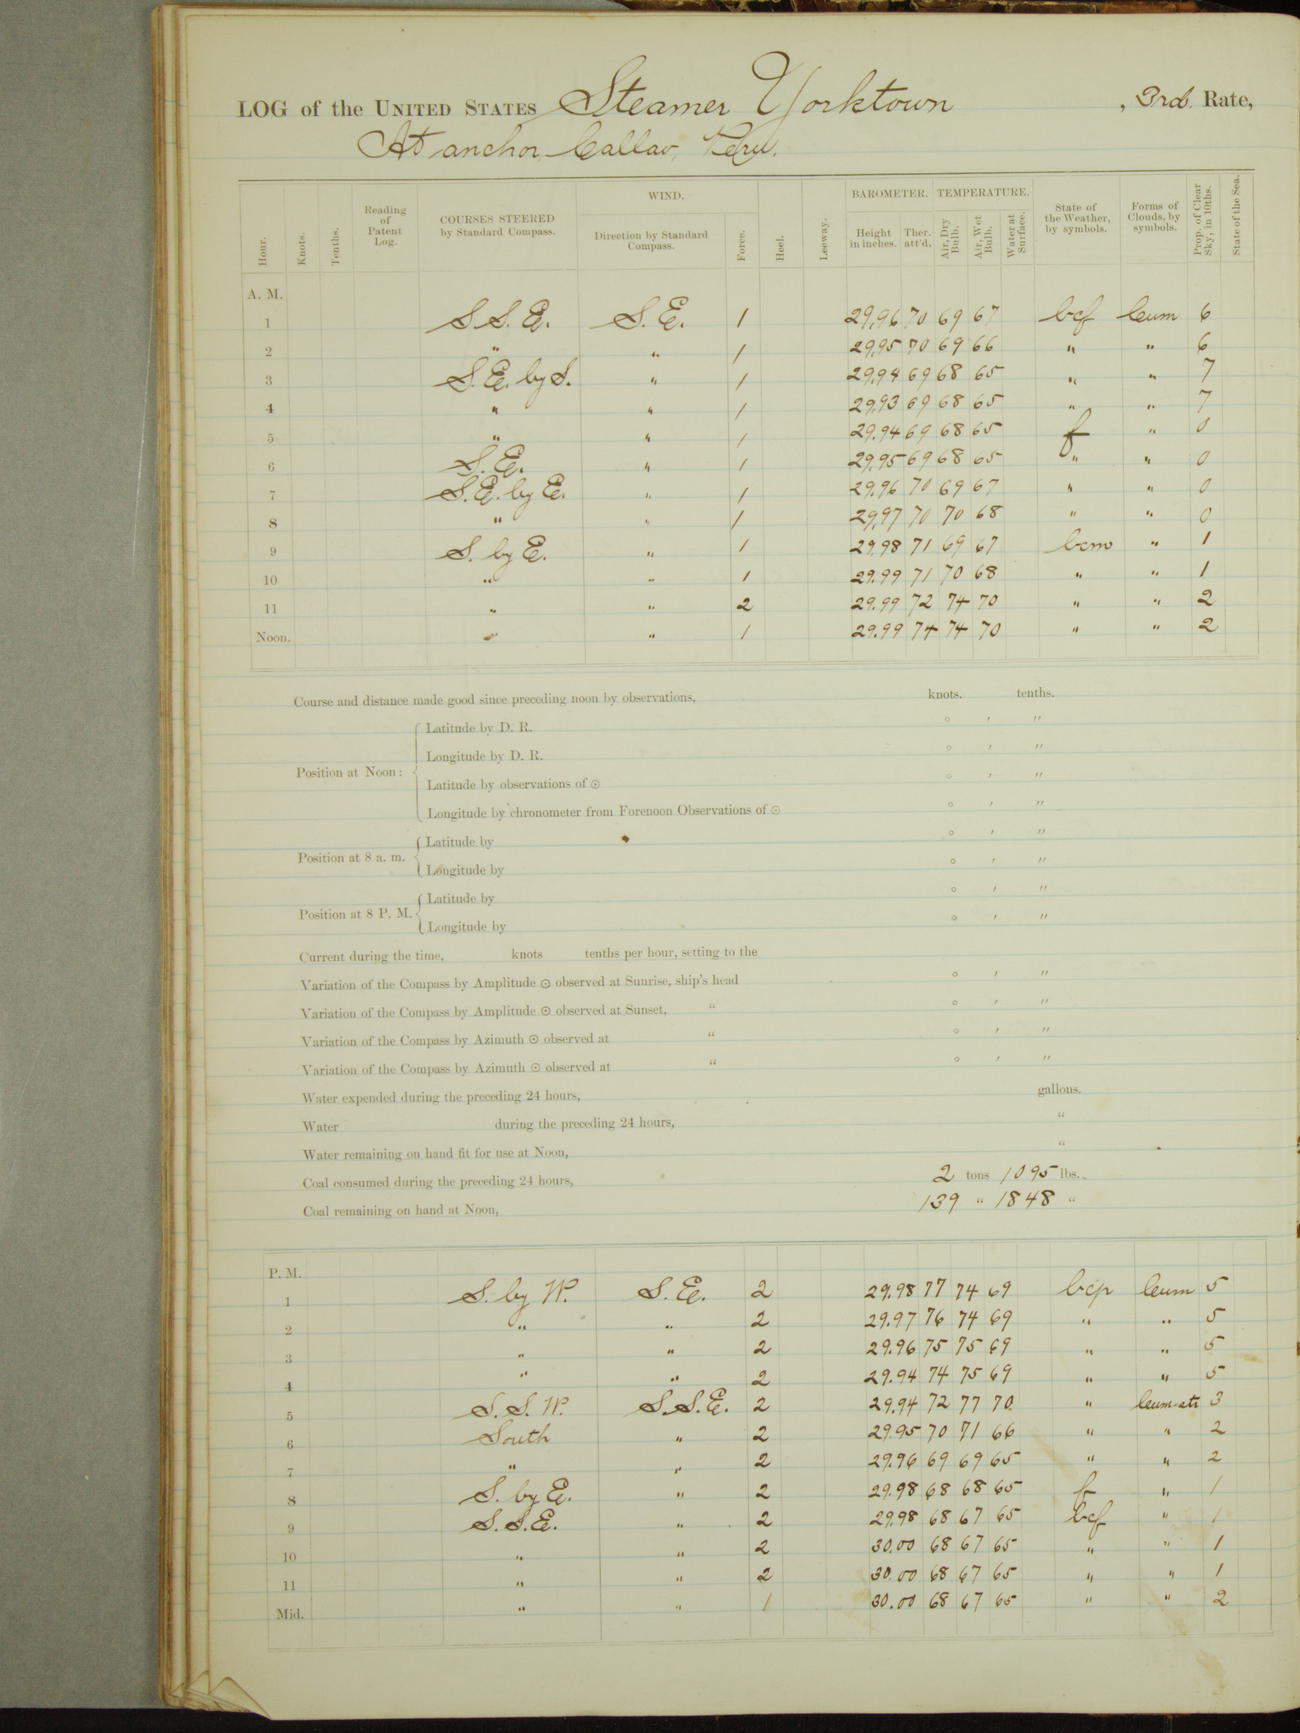 LOG of the UNITED STATES Steamer Yorktown, 3rd. Rate,
At anchor, Callao, Peru.
Hour. Knots. Tenths. Reading of Patent Log. COURSES STEERED by Standard Compass. WIND. Direction by Standard Compass. Force. Heel. Leeway. BAROMETER. Height in inches. Ther. att'd. TEMPERATURE. Air, Dry Bulb. Air, Wet Bulb. Water at Surface. State of the Weather, by symbols. Forms of Clouds, by symbols. Prop. of Clear Sky, in 10ths. State of the Sea.
A. M.
1 S.S.E. S.E. 1 29.96 70 69 67 bcf Cum 6
2 " " 1 29.95 70 69 66 " " 6
3 S.E. by S. " 1 29.94 69 68 65 " " 7
4 " " 1 29.93 69 68 65 " " 7
5 " " 1 29.94 69 68 65 f " 0
6 S.E. " 1 29.95 69 68 65 " " 0
7 S.E. by E. " 1 29.96 70 69 67 " " 0
8 " " 1 29.97 70 70 68 " " 0
9 S. by E. " 1 29.98 71 69 67 bcm " 1
10 " " 1 29.99 71 70 68 " " 1
11 " " 2 29.99 72 74 70 " " 2
Noon. " " 1 29.99 74 74 70 " " 2
Course and distance made good since preceding noon by observations, knots. tenths.
Position at Noon:
Latitude by D. R. ° ′ ″
Longitude by D. R. ° ′ ″
Latitude by observations of ☉ ° ′ ″
Longitude by chronometer from Forenoon Observations of ☉ ° ′ ″
Position at 8 a. m.
Latitude by ° ′ ″
Longitude by ° ′ ″
Position at 8 P. M.
Latitude by ° ′ ″
Longitude by ° ′ ″
Current during the time, knots tenths per hour, setting to the
Variation of the Compass by Amplitude ☉ observed at Sunrise, ship's head ° ′ ″
Variation of the Compass by Amplitude ☉ observed at Sunset, " ° ′ ″
Variation of the Compass by Azimuth ☉ observed at " ° ′ ″
Variation of the Compass by Azimuth ☉ observed at " ° ′ ″
Water expended during the preceding 24 hours, gallons.
Water during the preceding 24 hours, "
Water remaining on hand fit for use at Noon, "
Coal consumed during the preceding 24 hours, 2 tons 1095 lbs.
Coal remaining on hand at Noon, 139 " 1848 "
P. M.
1 S. by W. S.E. 2 29.98 77 74 69 bcp Cum 5
2 " " 2 29.97 76 74 69 " " 5
3 " " 2 29.96 75 75 69 " " 5
4 " " 2 29.94 74 75 69 " " 5
5 S.S.W. S.S.E. 2 29.94 72 77 70 " Cum-str 3
6 South " 2 29.95 70 71 66 " " 2
7 " " 2 29.96 69 69 65 " " 2
8 S. by E. " 2 29.98 68 68 65 f " 1
9 S.S.E. " 2 29.98 68 67 65 bcf " 1
10 " " 2 30.00 68 67 65 " " 1
11 " " 2 30.00 68 67 65 " " 1
Mid. " " 1 30.00 68 67 65 " " 2